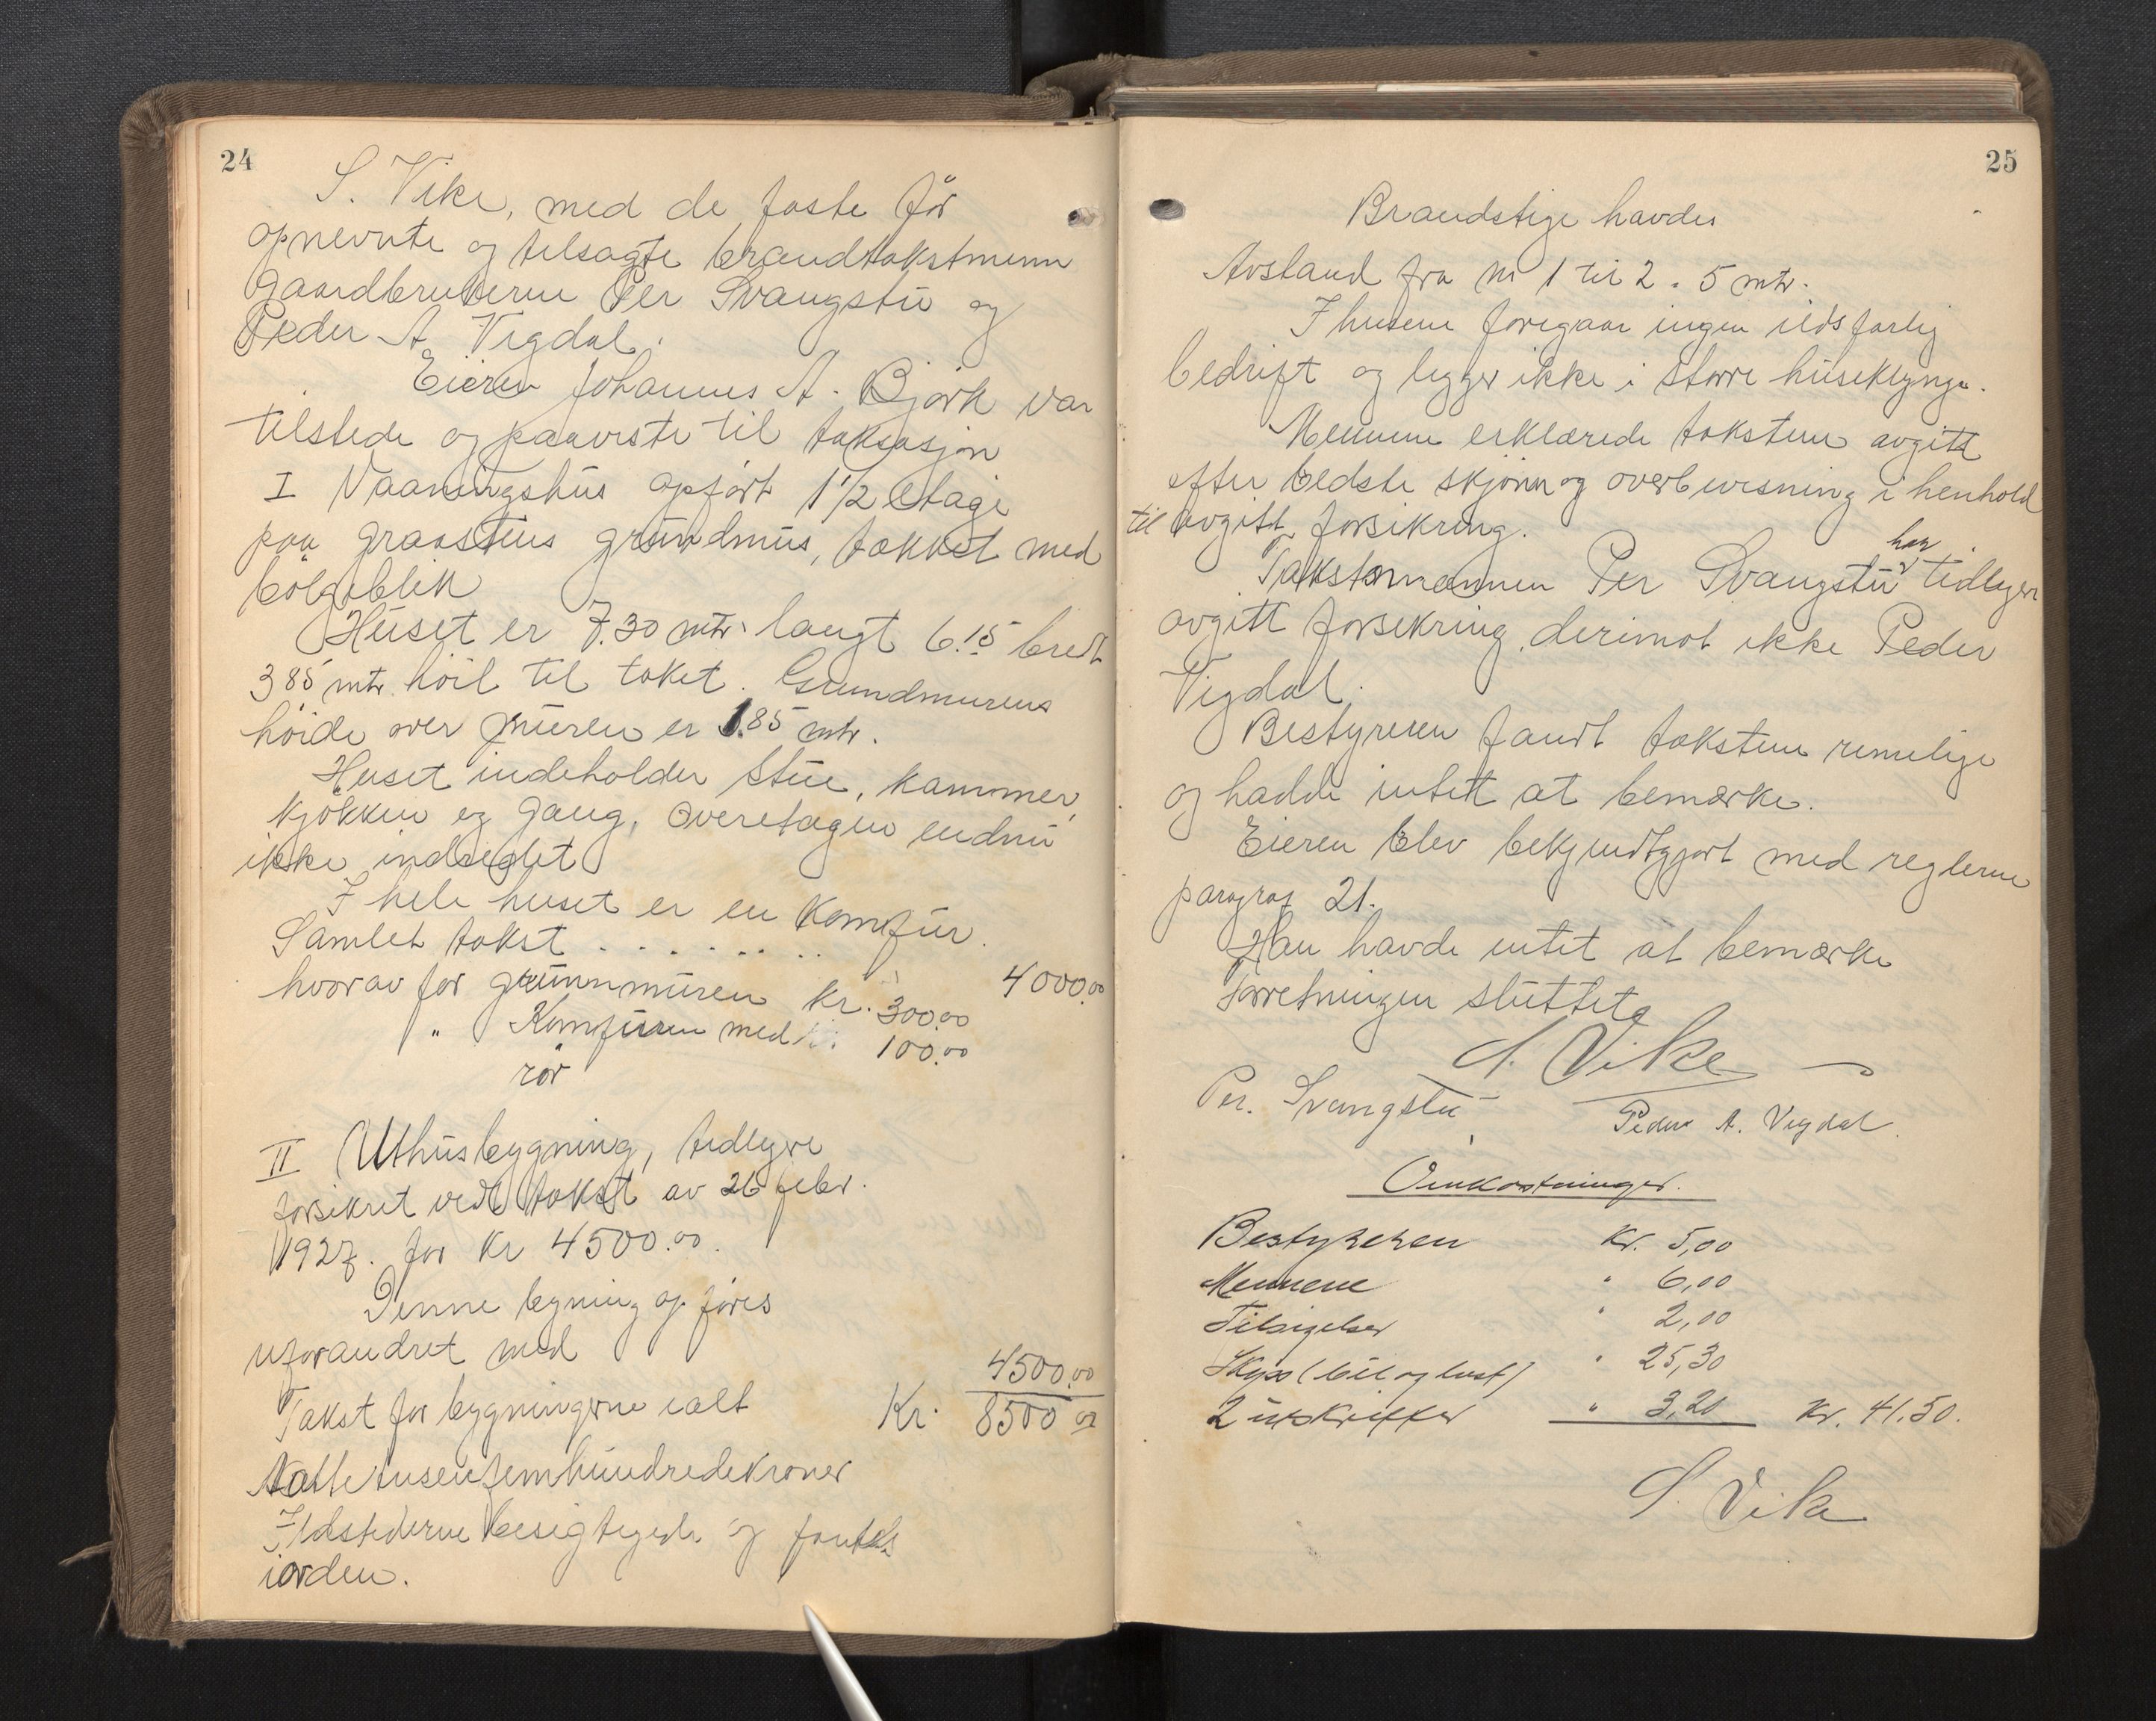 24
S. Vike, med de faste før
opnevnte og tilsagte brandtakstmenn
gaardbrukerne Per Svangstu og
Peder A. Vigdal.
Eieren Johannes A. Bjørk var
tilstede og paaviste til taksasjon
I Vaaningshus opført 1 1/2 etage
paa graastens grundmur, tækket med
bølgeblik
Huset er 7.30 mtr. langt 6.15 bredt
3.85 mtr. høit til taket. Grundmurens
høide over muren er 1.85 mtr.
Huset indeholder stue, kammer,
kjøkken og gang, overetagen endnu
ikke indredet
I hele huset er en komfur.
Samlet takst . . . . . . . . 4000.00
hvorav for grunnmuren kr. 300.00
" Komfuren med 100.00
rør
II Uthusbygning, tidligere
forsikret ved takst av 26 febr.
1927. for kr 4500.00.
Denne bygning opføres
uforandret med 4500.00
Takst for bygningerne ialt Kr. 8500 00
Aattetusenfemhundredekroner
Ildstederne besigtigede og fantes
iorden.
25
Brandstige havdes
Avstand fra nr 1 til 2 . 5 mtr.
I husene foregaar ingen ildsfarlig
bedrift og ligger ikke i større huseklynge.
Mennene erklærede taksten avgitt
efter bedste skjønn og overbevisning i henhold
til avgitt forsikring.
Takstmannen Per Svangstu har tidligere
avgitt forsikring, derimot ikke Peder
Vigdal.
Bestyreren fandt taksten rimelige
og hadde intett at bemærke.
Eieren blev bekjendtgjort med reglerne
paragraf 21.
Han havde intet at bemærke
Forretningen sluttet
S. Vike
Per. Svangstu, Peder A. Vigdal.
Omkostninger.
Bestyreren Kr. 5,00
Mennene " 6,00
Tilsigelser " 2,00
Skyss (bil og hest) " 25,30
2 utskrifter " 3,20 Kr. 41.50.
S. Vike